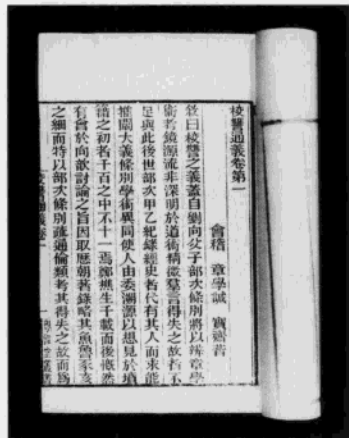 校讐通義卷第一
會稽 章學誠 實齋著
敘曰校讐之義蓋自劉向父子部次條別將以辨章學
術考鏡源流非深明於道術精微羣言得失之故者不
足與此後世部次甲乙紀錄經史者代有其人而求能
推闡大義條別學術異同使人由委溯源以想見於墳
籍之初者千百之中不十一焉鄭樵生千載而後慨然
有會於向歆討論之旨因取歷朝著錄略其魚魯豕亥
之細而特以部次條別疏通倫類考其得失之故而爲
校讐通義卷一